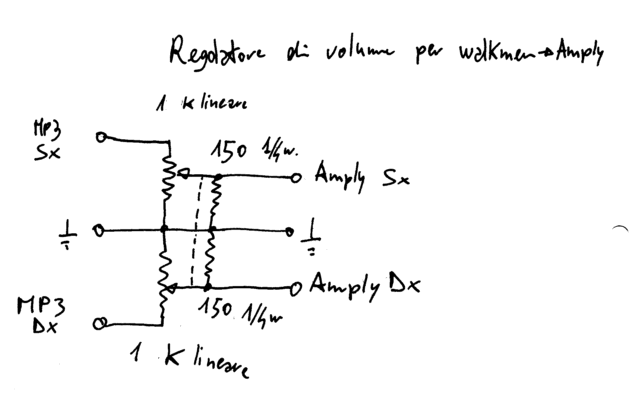 Regolatore di volume per walkmen → Amply
1 K lineare
MP3
Sx
150 1/4w.
Amply Sx
Amply Dx
MP3
Dx
150 1/4w
1 K lineare